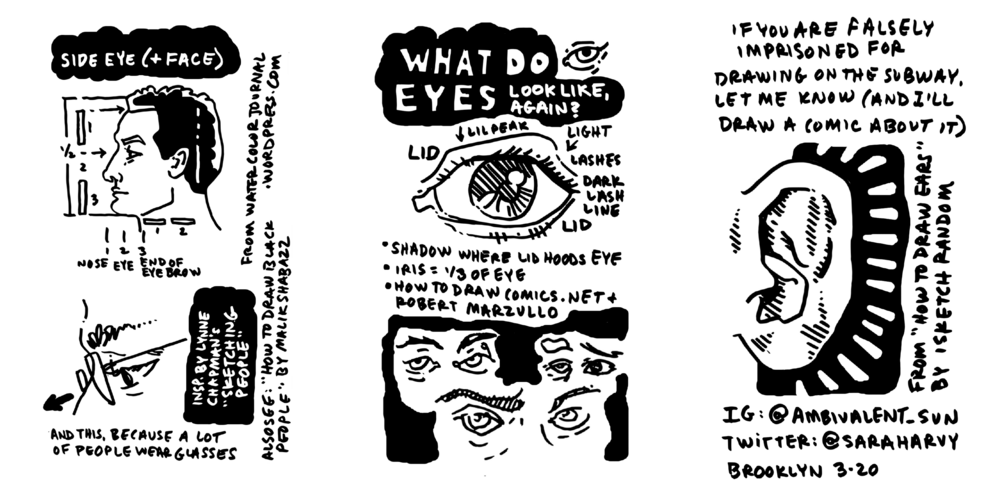 SIDE EYE (+ FACE)
1/2
1
2
3
1
2
1
2
3
NOSE EYE END OF
EYEBROW
FROM WATERCOLORJOURNAL
.WORDPRESS.COM
INSP. BY LYNNE
CHAPMAN'S
"SKETCHING
PEOPLE"
ALSO SEE: "HOW TO DRAW BLACK
PEOPLE" BY MALIKSHABAZZ
AND THIS, BECAUSE A LOT
OF PEOPLE WEAR GLASSES
WHAT DO
EYES LOOK LIKE,
AGAIN?
LIL PEAK
LIGHT
LID
LASHES
DARK
LASH
LINE
LID
• SHADOW WHERE LID HOODS EYE
• IRIS = 1/3 OF EYE
• HOW TO DRAW COMICS.NET +
ROBERT MARZULLO
IF YOU ARE FALSELY
IMPRISONED FOR
DRAWING ON THE SUBWAY,
LET ME KNOW (AND I'LL
DRAW A COMIC ABOUT IT)
FROM "HOW TO DRAW EARS"
BY ISKETCH RANDOM
IG: @AMBIVALENT_SUN
TWITTER: @SARAHARVY
BROOKLYN 3-20